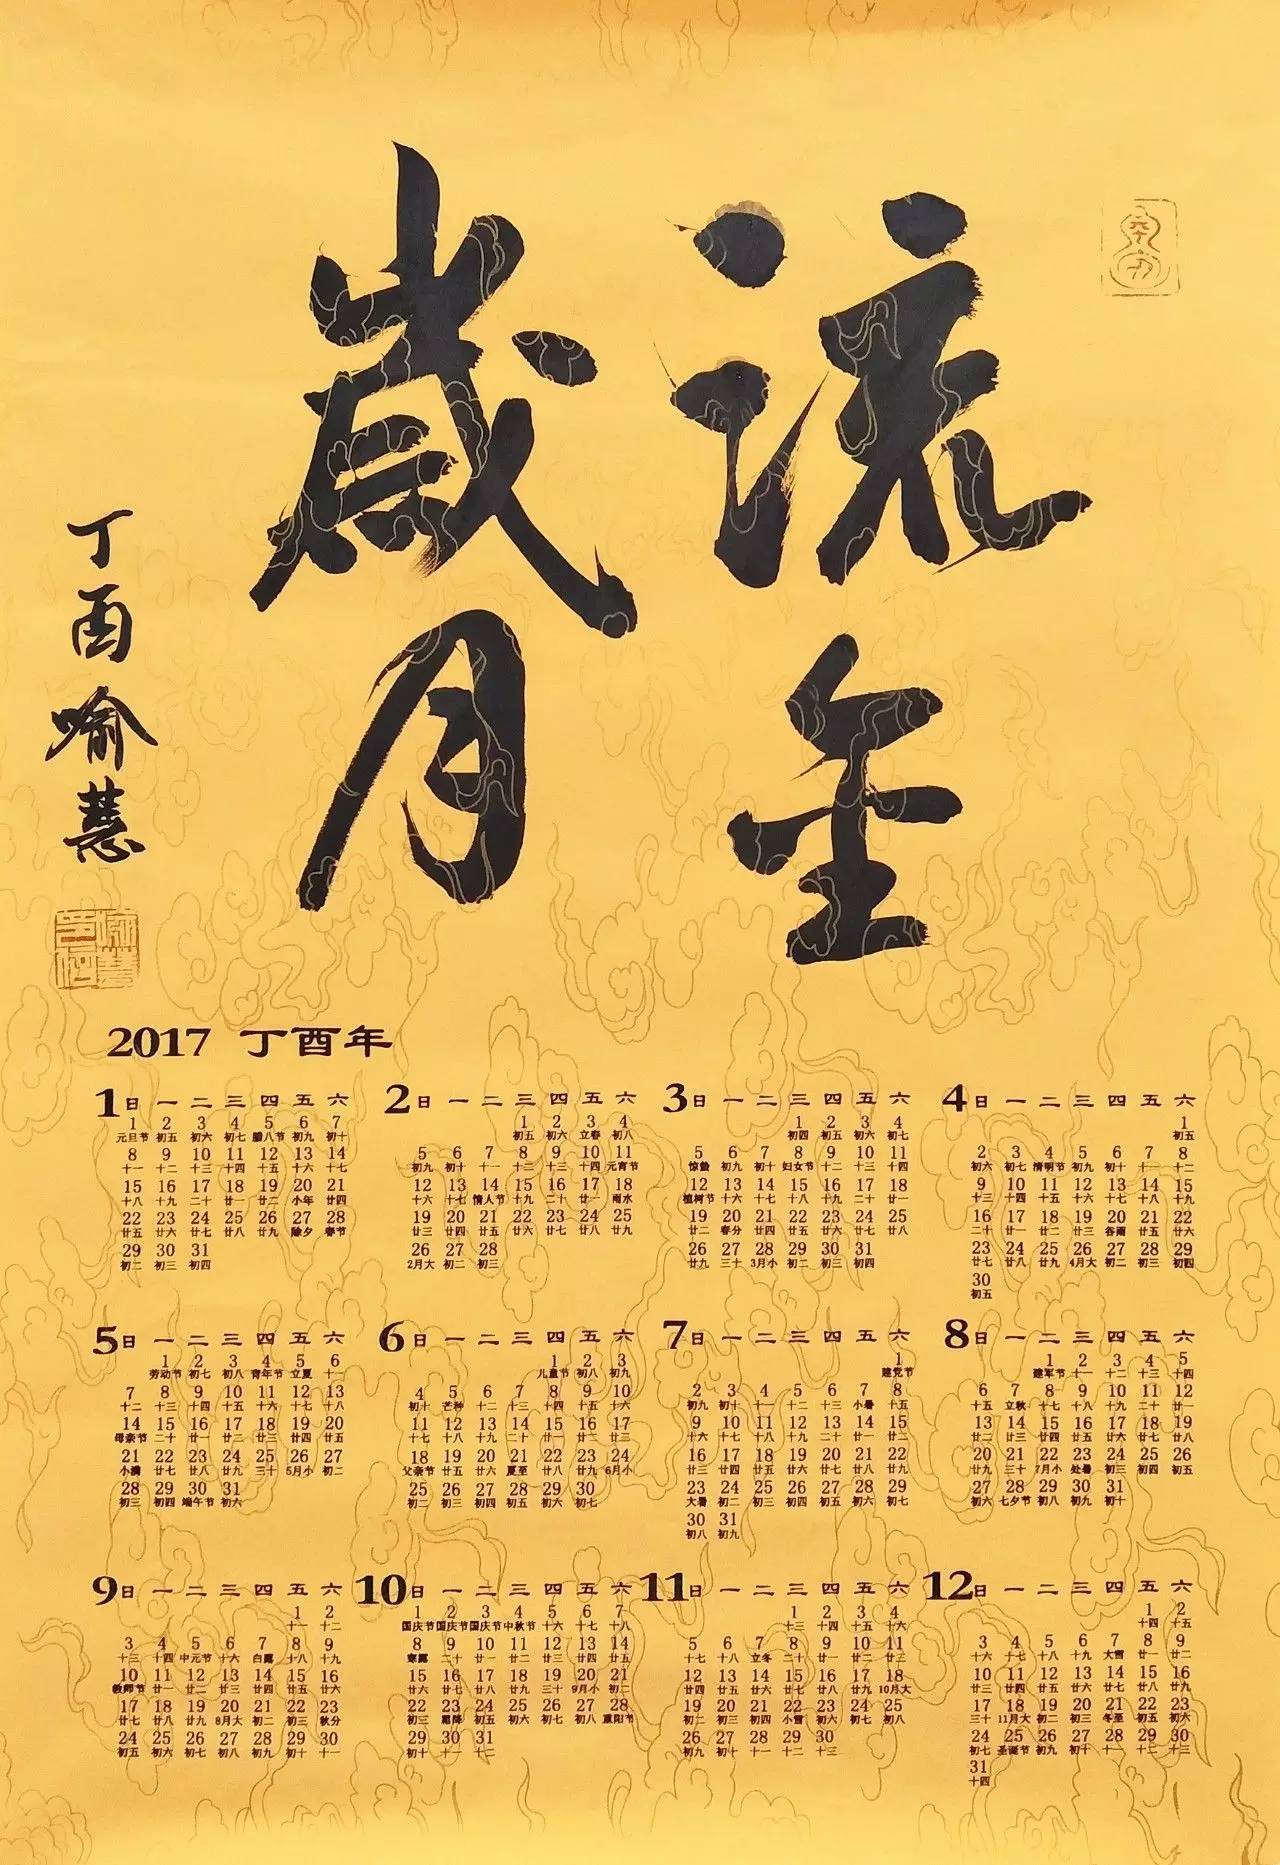 流金
歲月
丁酉 喻慧
2017 丁酉年
1 日 一 二 三 四 五 六
1 2 3 4 5 6 7
元旦节 初五 初六 初七 腊八节 初九 初十
8 9 10 11 12 13 14
十一 十二 十三 十四 十五 十六 十七
15 16 17 18 19 20 21
十八 十九 二十 廿一 廿二 小年 廿四
22 23 24 25 26 27 28
廿五 廿六 廿七 廿八 廿九 除夕 春节
29 30 31
初二 初三 初四
2 日 一 二 三 四 五 六
1 2 3 4
初五 初六 立春 初八
5 6 7 8 9 10 11
初九 初十 十一 十二 十三 十四 元宵节
12 13 14 15 16 17 18
十六 十七 情人节 十九 二十 廿一 雨水
19 20 21 22 23 24 25
廿三 廿四 廿五 廿六 廿七 廿八 廿九
26 27 28
2月大 初二 初三
3 日 一 二 三 四 五 六
1 2 3 4
初四 初五 初六 初七
5 6 7 8 9 10 11
惊蛰 初九 初十 妇女节 十二 十三 十四
12 13 14 15 16 17 18
植树节 十六 十七 十八 十九 二十 廿一
19 20 21 22 23 24 25
廿二 春分 廿四 廿五 廿六 廿七 廿八
26 27 28 29 30 31
廿九 三十 3月小 初二 初三 初四
4 日 一 二 三 四 五 六
1
初五
2 3 4 5 6 7 8
初六 初七 清明节 初九 初十 十一 十二
9 10 11 12 13 14 15
十三 十四 十五 十六 十七 十八 十九
16 17 18 19 20 21 22
二十 廿一 廿二 廿三 谷雨 廿五 廿六
23 24 25 26 27 28 29
廿七 廿八 廿九 4月大 初二 初三 初四
30
初五
5 日 一 二 三 四 五 六
1 2 3 4 5 6
劳动节 初七 初八 青年节 立夏 十一
7 8 9 10 11 12 13
十二 十三 十四 十五 十六 十七 十八
14 15 16 17 18 19 20
母亲节 二十 廿一 廿二 廿三 廿四 廿五
21 22 23 24 25 26 27
小满 廿七 廿八 廿九 三十 5月小 初二
28 29 30 31
初三 初四 端午节 初六
6 日 一 二 三 四 五 六
1 2 3
儿童节 初八 初九
4 5 6 7 8 9 10
初十 芒种 十二 十三 十四 十五 十六
11 12 13 14 15 16 17
十七 十八 十九 二十 廿一 廿二 廿三
18 19 20 21 22 23 24
父亲节 廿五 廿六 夏至 廿八 廿九 6月小
25 26 27 28 29 30
初二 初三 初四 初五 初六 初七
7 日 一 二 三 四 五 六
1
建党节
2 3 4 5 6 7 8
初九 初十 十一 十二 十三 小暑 十五
9 10 11 12 13 14 15
十六 十七 十八 十九 二十 廿一 廿二
16 17 18 19 20 21 22
廿三 廿四 廿五 廿六 廿七 廿八 廿九
23 24 25 26 27 28 29
大暑 初二 初三 初四 初五 初六 初七
30 31
初八 初九
8 日 一 二 三 四 五 六
1 2 3 4 5
建军节 十一 十二 十三 十四
6 7 8 9 10 11 12
十五 立秋 十七 十八 十九 二十 廿一
13 14 15 16 17 18 19
廿二 廿三 廿四 廿五 廿六 廿七 廿八
20 21 22 23 24 25 26
廿九 三十 7月小 处暑 初三 初四 初五
27 28 29 30 31
初六 七夕节 初八 初九 初十
9 日 一 二 三 四 五 六
1 2
十一 十二
3 4 5 6 7 8 9
十三 十四 中元节 十六 白露 十八 十九
10 11 12 13 14 15 16
教师节 廿一 廿二 廿三 廿四 廿五 廿六
17 18 19 20 21 22 23
廿七 廿八 廿九 8月大 初二 初三 秋分
24 25 26 27 28 29 30
初五 初六 初七 初八 初九 初十 十一
10 日 一 二 三 四 五 六
1 2 3 4 5 6 7
国庆节 国庆节 国庆节 中秋节 十六 十七 十八
8 9 10 11 12 13 14
寒露 二十 廿一 廿二 廿三 廿四 廿五
15 16 17 18 19 20 21
廿六 廿七 廿八 廿九 三十 9月小 初二
22 23 24 25 26 27 28
初三 霜降 初五 初六 初七 初八 重阳节
29 30 31
初十 十一 十二
11 日 一 二 三 四 五 六
1 2 3 4
十三 十四 十五 十六
5 6 7 8 9 10 11
十七 十八 立冬 二十 廿一 廿二 廿三
12 13 14 15 16 17 18
廿四 廿五 廿六 廿七 廿八 廿九 10月大
19 20 21 22 23 24 25
初二 初三 初四 小雪 初六 初七 初八
26 27 28 29 30
初九 初十 十一 十二 十三
12 日 一 二 三 四 五 六
1 2
十四 十五
3 4 5 6 7 8 9
十六 十七 十八 十九 大雪 廿一 廿二
10 11 12 13 14 15 16
廿三 廿四 廿五 廿六 廿七 廿八 廿九
17 18 19 20 21 22 23
三十 11月大 初二 初三 冬至 初五 初六
24 25 26 27 28 29 30
初七 圣诞节 初九 初十 十一 十二 十三
31
十四